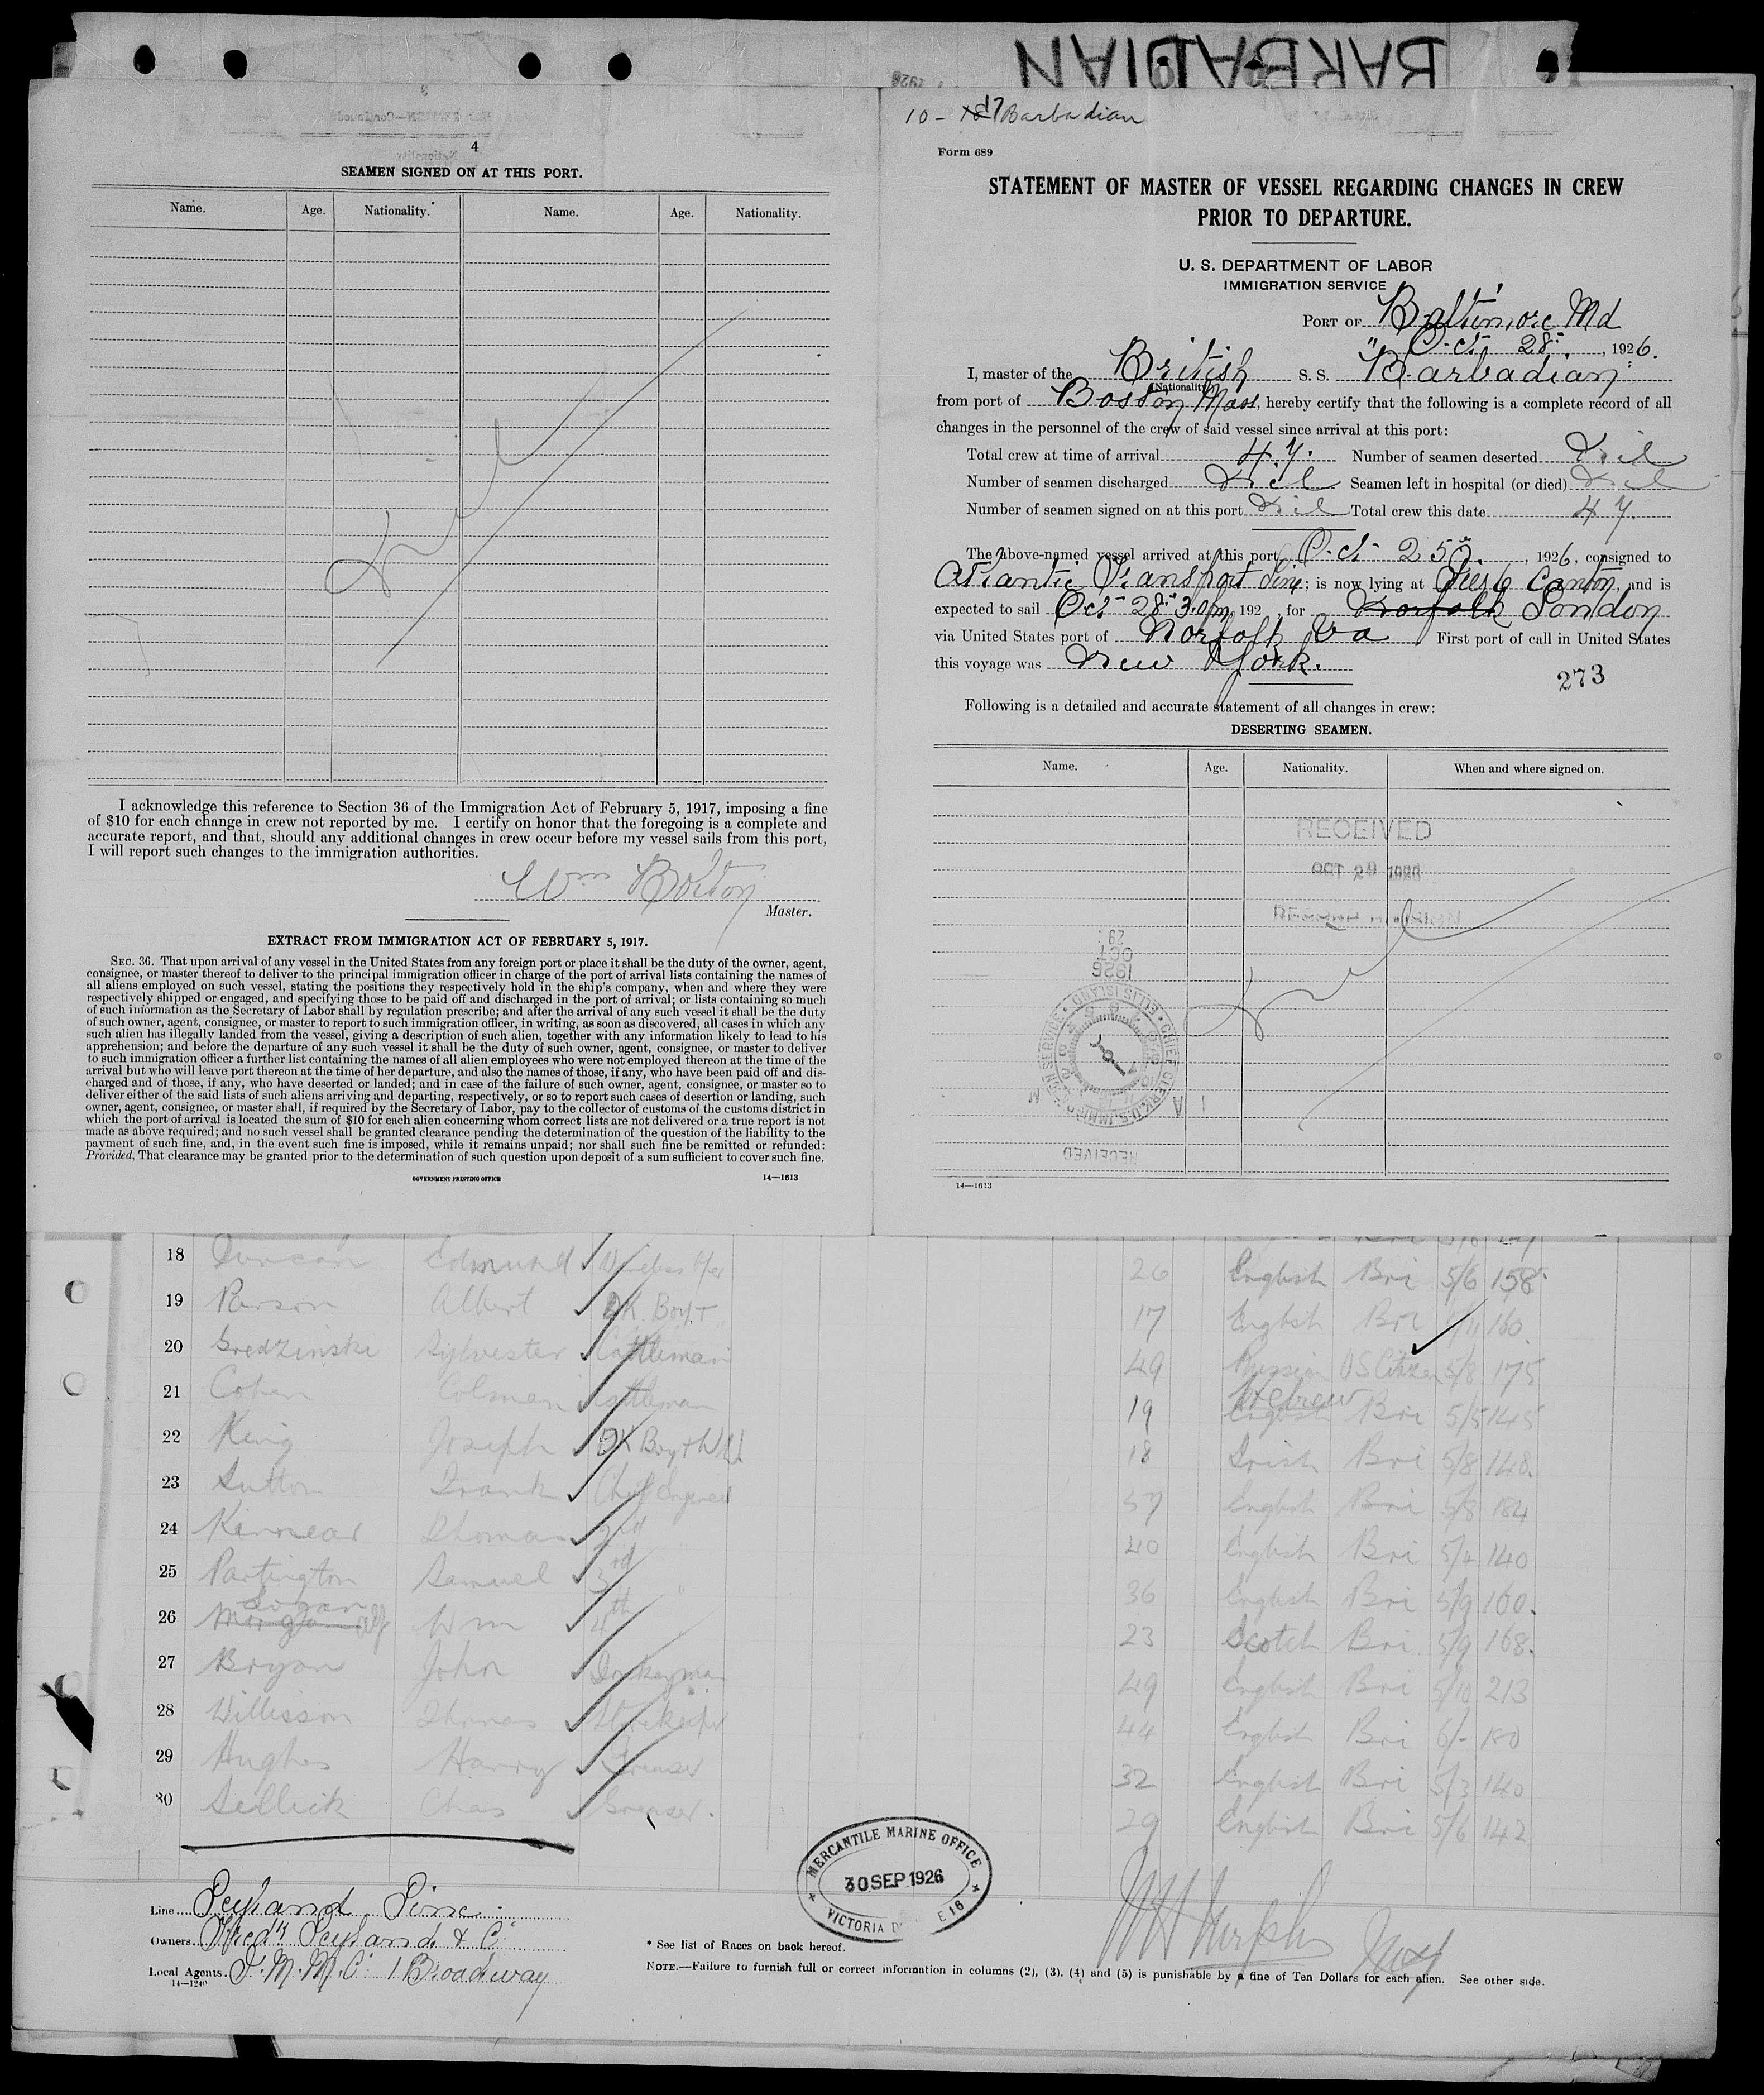 BARBADIAN
4
SEAMEN SIGNED ON AT THIS PORT.
Name. Age. Nationality. Name. Age. Nationality.
Nil
I acknowledge this reference to Section 36 of the Immigration Act of February 5, 1917, imposing a fine
of $10 for each change in crew not reported by me. I certify on honor that the foregoing is a complete and
accurate report, and that, should any additional changes in crew occur before my vessel sails from this port,
I will report such changes to the immigration authorities.
Wm Bolton
Master.
EXTRACT FROM IMMIGRATION ACT OF FEBRUARY 5, 1917.
SEC. 36. That upon arrival of any vessel in the United States from any foreign port or place it shall be the duty of the owner, agent,
consignee, or master thereof to deliver to the principal immigration officer in charge of the port of arrival lists containing the names of
all aliens employed on such vessel, stating the positions they respectively hold in the ship's company, when and where they were
respectively shipped or engaged, and specifying those to be paid off and discharged in the port of arrival; or lists containing so much
of such information as the Secretary of Labor shall by regulation prescribe; and after the arrival of any such vessel it shall be the duty
of such owner, agent, consignee, or master to report to such immigration officer, in writing, as soon as discovered, all cases in which any
such alien has illegally landed from the vessel, giving a description of such alien, together with any information likely to lead to his
apprehension; and before the departure of any such vessel it shall be the duty of such owner, agent, consignee, or master to deliver
to such immigration officer a further list containing the names of all alien employees who were not employed thereon at the time of the
arrival but who will leave port thereon at the time of her departure, and also the names of those, if any, who have been paid off and dis-
charged and of those, if any, who have deserted or landed; and in case of the failure of such owner, agent, consignee, or master so to
deliver either of the said lists of such aliens arriving and departing, respectively, or so to report such cases of desertion or landing, such
owner, agent, consignee, or master shall, if required by the Secretary of Labor, pay to the collector of customs of the customs district in
which the port of arrival is located the sum of $10 for each alien concerning whom correct lists are not delivered or a true report is not
made as above required; and no such vessel shall be granted clearance pending the determination of the question of the liability to the
payment of such fine, and, in the event such fine is imposed, while it remains unpaid; nor shall such fine be remitted or refunded:
Provided, That clearance may be granted prior to the determination of such question upon deposit of a sum sufficient to cover such fine.
GOVERNMENT PRINTING OFFICE 14—1613
10 - Barbadian
Form 689
STATEMENT OF MASTER OF VESSEL REGARDING CHANGES IN CREW
PRIOR TO DEPARTURE.
U. S. DEPARTMENT OF LABOR
IMMIGRATION SERVICE
PORT OF Baltimore Md
Oct 28, 1926.
I, master of the British S. S. "Barbadian"
(Nationality)
from port of Boston Mass, hereby certify that the following is a complete record of all
changes in the personnel of the crew of said vessel since arrival at this port:
Total crew at time of arrival 47. Number of seamen deserted Nil
Number of seamen discharged Nil Seamen left in hospital (or died) Nil
Number of seamen signed on at this port Nil Total crew this date 47.
The above-named vessel arrived at this port Oct 25, 1926, consigned to
Atlantic Transport Line; is now lying at Pier 6 Canton, and is
expected to sail Oct 28 3.0pm, 192 , for Norfolk London
via United States port of Norfolk Va First port of call in United States
this voyage was New York.
273
Following is a detailed and accurate statement of all changes in crew:
DESERTING SEAMEN.
Name. Age. Nationality. When and where signed on.
RECEIVED
OCT 29 1926
RECORD DIVISION
29
OCT
1926
CHIEF CLERK, U.S. IMMIGRATION SERVICE ELLIS ISLAND
RECEIVED
Nil
14—1613
18 Duncan Edmund Wireless Oper 26 English Bri 5/6 158
19 Albert DK. Boy 17 English Bri 160
20 Gredzinski Sylvester Cattleman 49 Russian US Citizen 5/8 175
21 Cohen Colman Cattleman 19 English Hebrew Bri 5/5 145
22 King Joseph DK Boy 18 Irish Bri 5/8 148
23 Sutton Frank Chief Engineer 57 English Bri 5/8 184
24 Kinnear Thomas 2nd 40 English Bri 5/4 140
25 Partington Samuel 3rd " 36 English Bri 5/9 160
26 Morgan Logan Wm 4th " 23 Scotch Bri 5/9 168
27 Bryan John Donkeyman 49 English Bri 5/10 213
28 Willisson Thomas Storekeeper 44 English Bri 6/- 180
29 Hughes Harry Greaser 32 English Bri 5/3 140
30 Sellick Chas Greaser. 29 English Bri 5/6 142
Line Leyland Line.
Owners Fredk Leyland & Co
Local Agents. I. M. M. Co 1 Broadway
14—1240
MERCANTILE MARINE OFFICE
30 SEP 1926
VICTORIA D E 16
* See list of Races on back hereof.
NOTE.—Failure to furnish full or correct information in columns (2), (3), (4) and (5) is punishable by a fine of Ten Dollars for each alien. See other side.